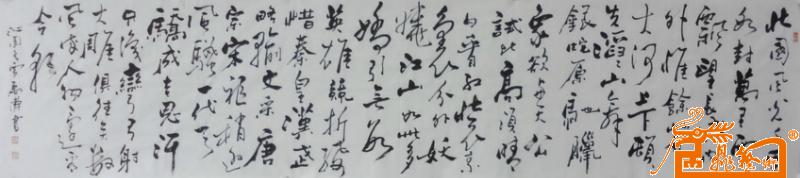 北國風光千
冰封萬里雪
飄望長城
外惟餘莽
大河上下頓
失滔滔山舞
銀蛇原馳臘
象欲与天公
試比高須晴
日看紅裝素
裹分外妖
嬈江山如此多
嬌引無數
英雄競折腰
惜秦皇漢武
略輸文采唐
宗宋祖稍遜
風騷一代天
驕成吉思汗
只識彎弓射
大雕俱往矣數
風流人物還看
今朝